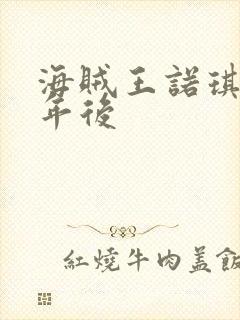 海賊王諾琪
年後
紅燒牛肉盖飯